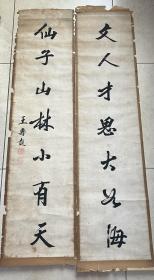 文人才思大如海
仙子山林小有天
王壽彭